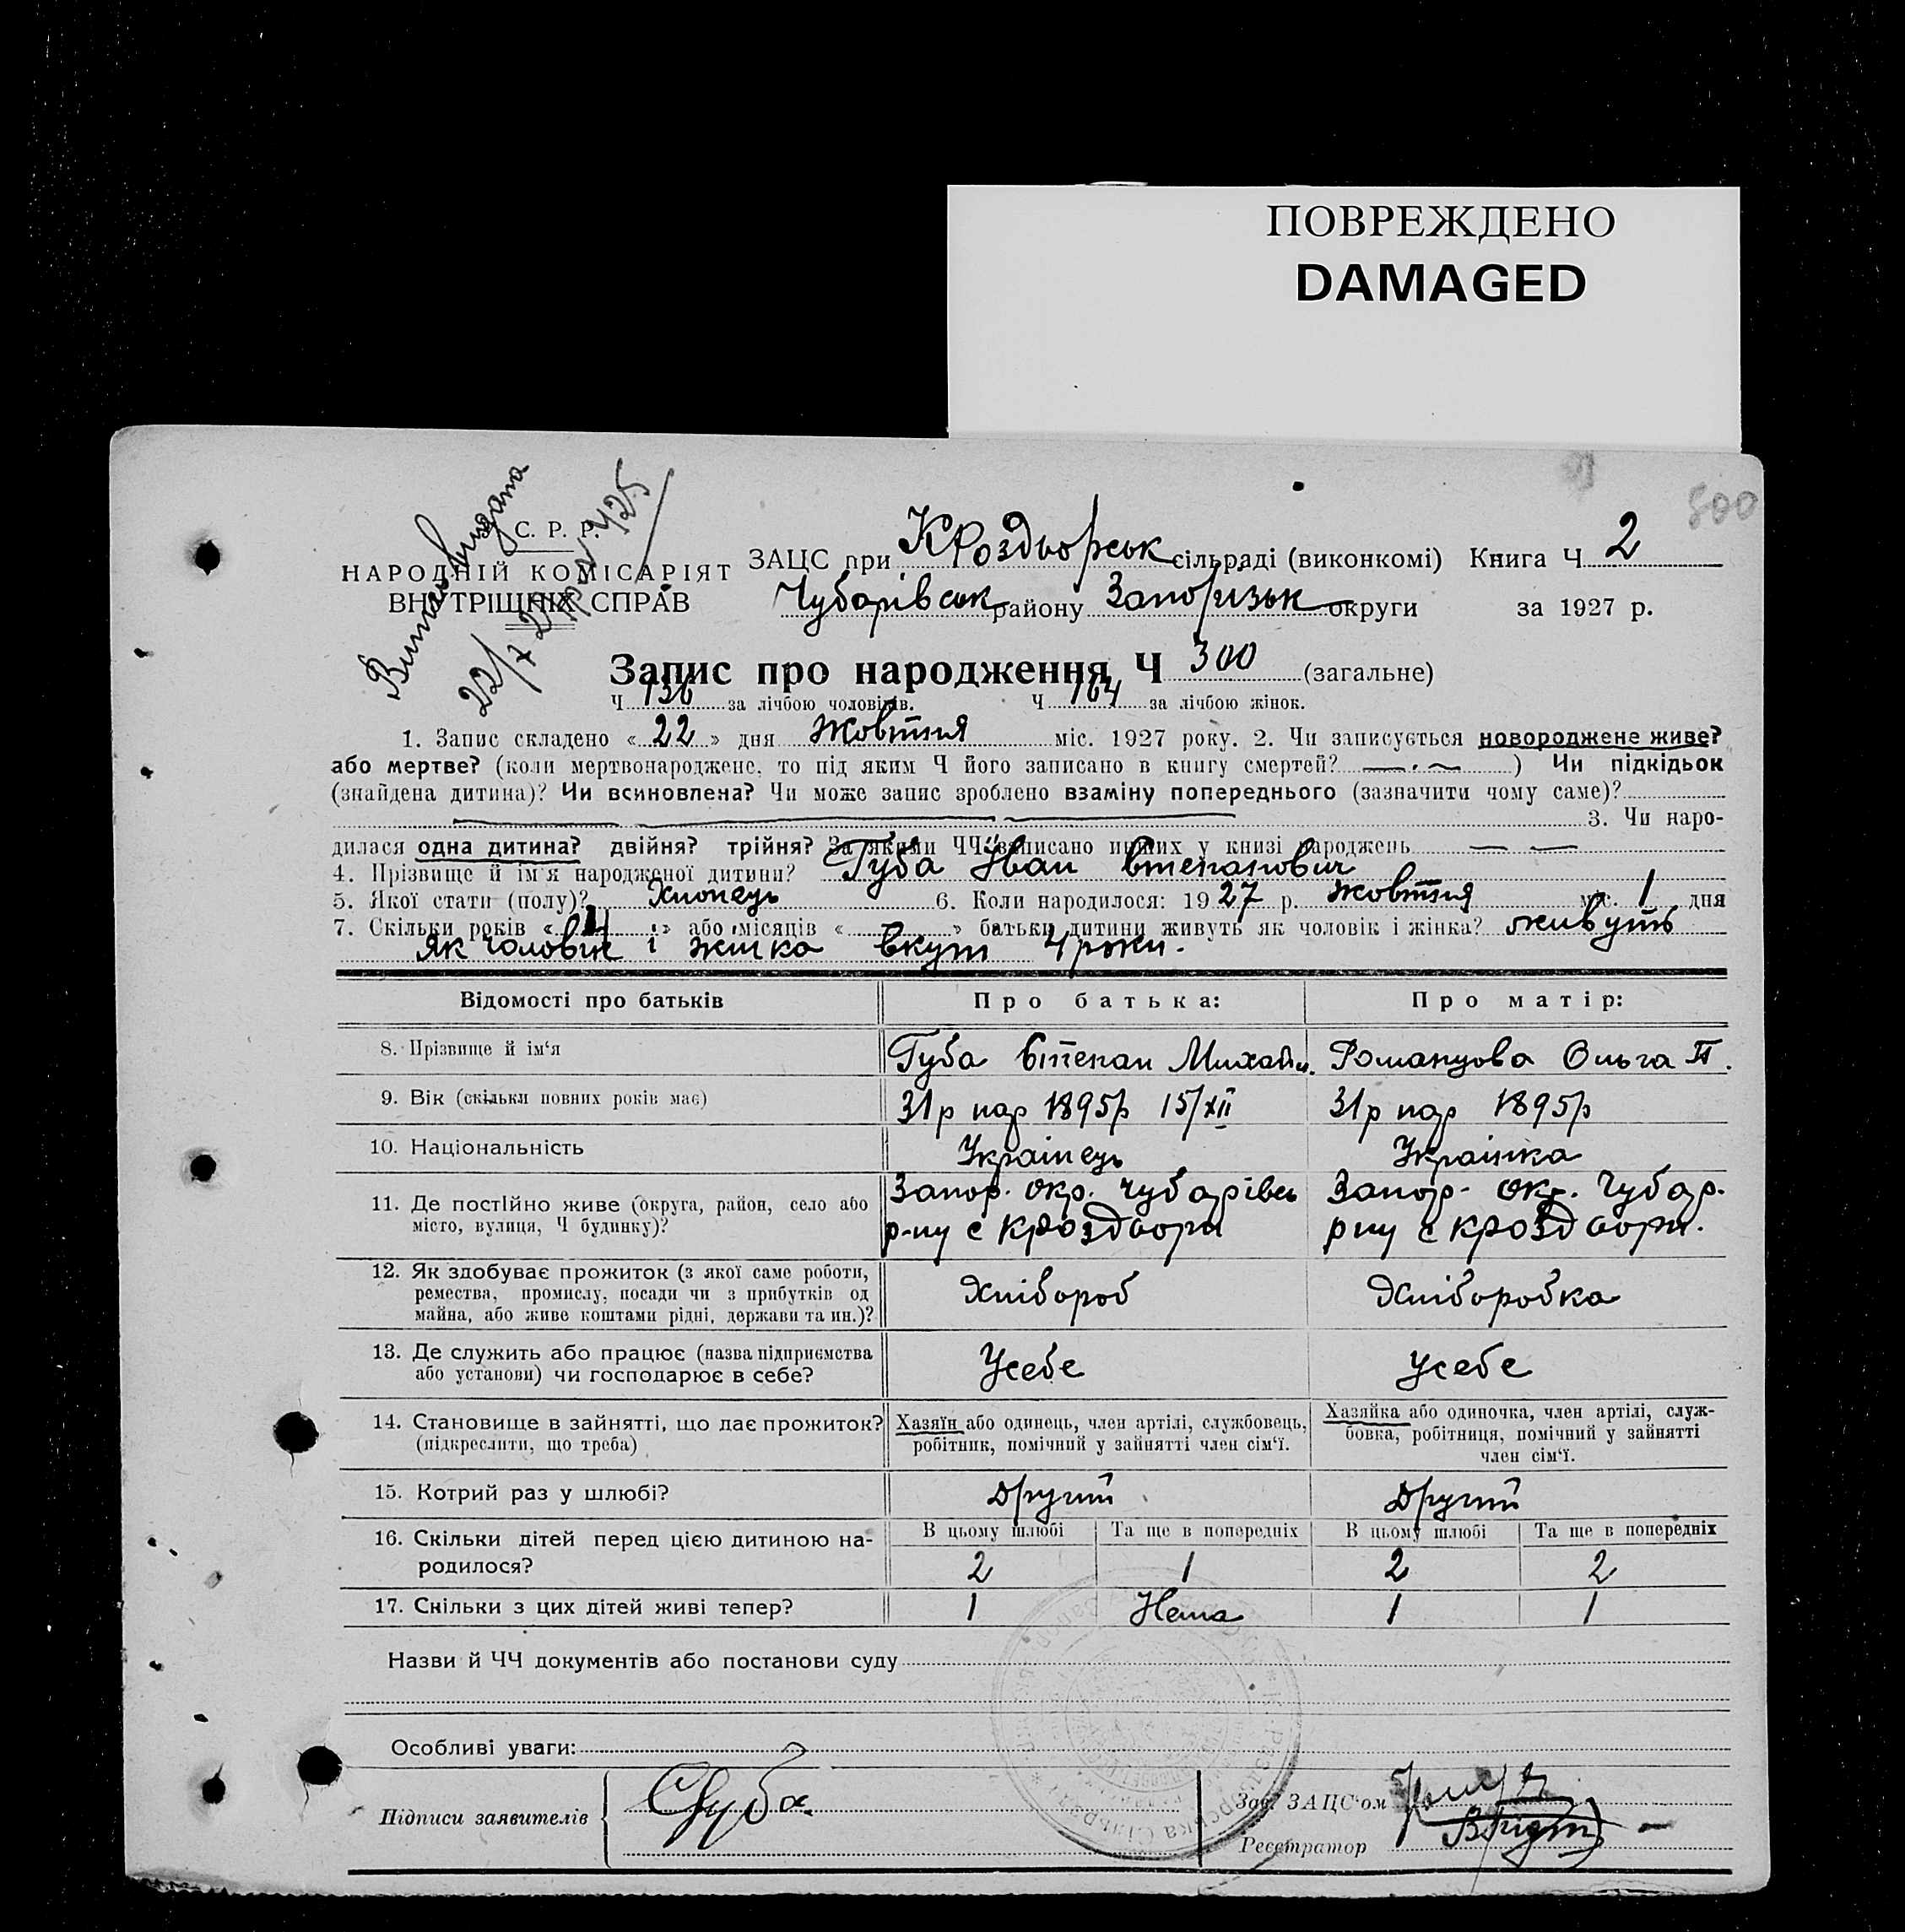 ПОВРЕЖДЕНО
DAMAGED
500
Витяг видана
22/7 29р № 425
С. Р. Р.
НАРОДНІЙ КОМІСАРІЯТ
ВНУТРІШНІХ СПРАВ
ЗАЦС при КРоздорськ сільраді (виконкомі) Книга Ч 2
Чубарівськ району Запорізьк округи за 1927 р.
Запис про народження Ч 300 (загальне)
Ч 136 за лічбою чоловіків. Ч 164 за лічбою жінок.
1. Запис складено « 22 » дня Жовтня міс. 1927 року. 2. Чи записується новороджене живе?
або мертве? (коли мертвонароджене, то під яким Ч його записано в книгу смертей? — . ~ ) Чи підкідьок
(знайдена дитина)? Чи всиновлена? Чи може запис зроблено взаміну попереднього (зазначити чому саме)?
3. Чи наро-
дилася одна дитина? двійня? трійня? За якими ЧЧ записано инших у книзі народжень — —
4. Прізвище й ім'я народженої дитини? Губа Іван Степанович
5. Якої стати (полу)? Хлопець 6. Коли народилося: 1927 р. жовтня міс. 1 дня
7. Скільки років « 4 » або місяців « » батьки дитини живуть як чоловік і жінка? живуть
як чоловік і жінка вкуп 4 роки.
Відомості про батьків Про батька: Про матір:
8. Прізвище й ім'я Губа Степан Михайл. Романцова Ольга П.
9. Вік (скільки повних років має) 31 р нар 1895р 15/XII 31 р нар 1895р
10. Національність Українець Українка
11. Де постійно живе (округа, район, село або місто, вулиця, Ч будинку)?
Запор. окр. Чубарівсь
р-ну с КРоздори
Запор. окр. Чубар.
рну с КРоздори.
12. Як здобуває прожиток (з якої саме роботи,
ремества, промислу, посади чи з прибутків од
майна, або живе коштами рідні, держави та ин.)?
Хлібороб Хліборобка
13. Де служить або працює (назва підприємства
або установи) чи господарює в себе?
Усебе Усебе
14. Становище в зайнятті, що дає прожиток?
(підкреслити, що треба)
Хазяїн або одинець, член артілі, службовець,
робітник, помічний у зайнятті член сім'ї.
Хазяйка або одиночка, член артілі, служ-
бовка, робітниця, помічний у зайнятті
член сім'ї.
15. Котрий раз у шлюбі? Другий Другий
16. Скільки дітей перед цією дитиною на-
родилося?
В цьому шлюбі Та ще в попередніх В цьому шлюбі Та ще в попередніх
2 1 2 2
17. Скільки з цих дітей живі тепер? 1 Нема 1 1
Назви й ЧЧ документів або постанови суду
Особливі уваги:
Підписи заявителів СГуба.
Зав. ЗАЦС'ом
Реєстратор